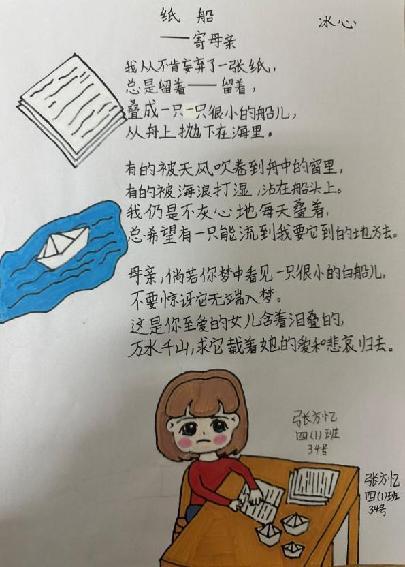 纸船
——寄母亲
冰心
我从不肯妄弃了一张纸,
总是留着——留着,
叠成一只一只很小的船儿,
从舟上抛下在海里。
有的被天风吹卷到舟中的窗里,
有的被海浪打湿,沾在船头上。
我仍是不灰心地每天叠着,
总希望有一只能流到我要它到的地方去。
母亲,倘若你梦中看见一只很小的白船儿,
不要惊讶它无端入梦。
这是你至爱的女儿含着泪叠的,
万水千山,求它载着她的爱和悲哀归去。
张方忆
四(1)班
34号
张方忆
四(1)班
34号